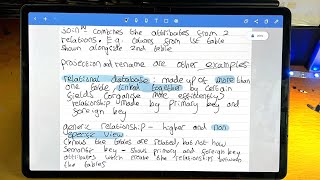 join combines the attributes from 2
relations. E.g. columns from 1st table
shown alongside 2nd table
projection and rename are other examples
relational database: made up of more than
one table linked together by certain
fields (organise more efficiently)
relationship made by primary key and
foreign key
generic relationship – higher and non
specific view
(shows the tables are related, but not how
semantic key – shows primary and foreign key
attributes which create the relationships between
the tables